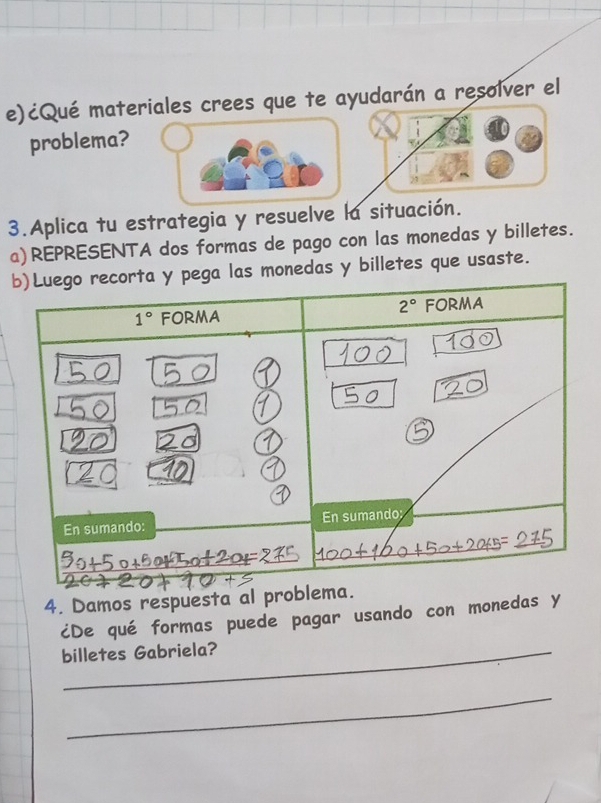 e) ¿Qué materiales crees que te ayudarán a resolver el
problema?
3. Aplica tu estrategia y resuelve la situación.
a) REPRESENTA dos formas de pago con las monedas y billetes.
b) Luego recorta y pega las monedas y billetes que usaste.
1° FORMA
2° FORMA
50 50 1
50 50 1
20 20 1
20 10 1
1
100 100
50 20
5
En sumando:
50+50+50+50+20+=275
20+20+10+5
En sumando:
100+100+50+20+5=275
4. Damos respuesta al problema.
¿De qué formas puede pagar usando con monedas y
billetes Gabriela?